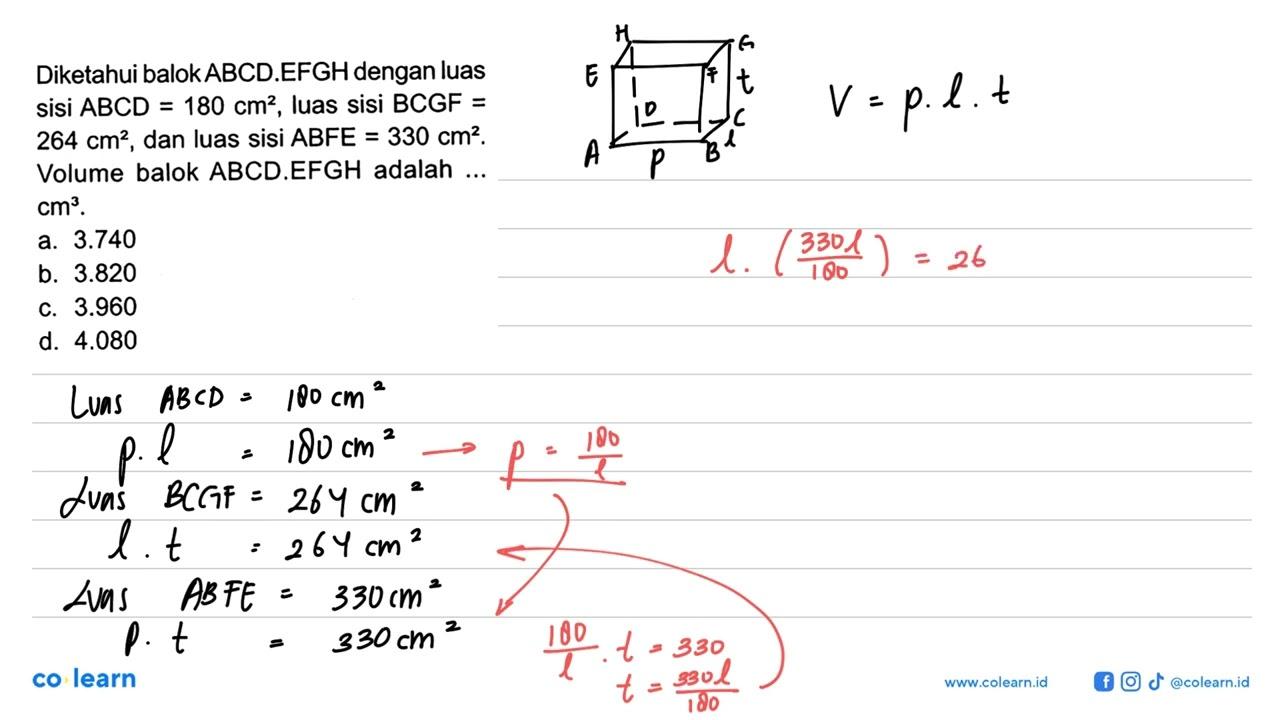 Diketahui balok ABCD.EFGH dengan luas
sisi ABCD = 180 cm², luas sisi BCGF =
264 cm², dan luas sisi ABFE = 330 cm².
Volume balok ABCD.EFGH adalah ...
cm³.
a. 3.740
b. 3.820
c. 3.960
d. 4.080
H G
E F t
D C
A p B l
V = p. l. t
l. (330l/180) = 26
Luas ABCD = 180 cm²
p. l = 180 cm² → p = 180/l
Luas BCGF = 264 cm²
l . t = 264 cm²
Luas ABFE = 330 cm²
p. t = 330 cm²
180/l . t = 330
t = 330l/180
co learn
www.colearn.id
@colearn.id